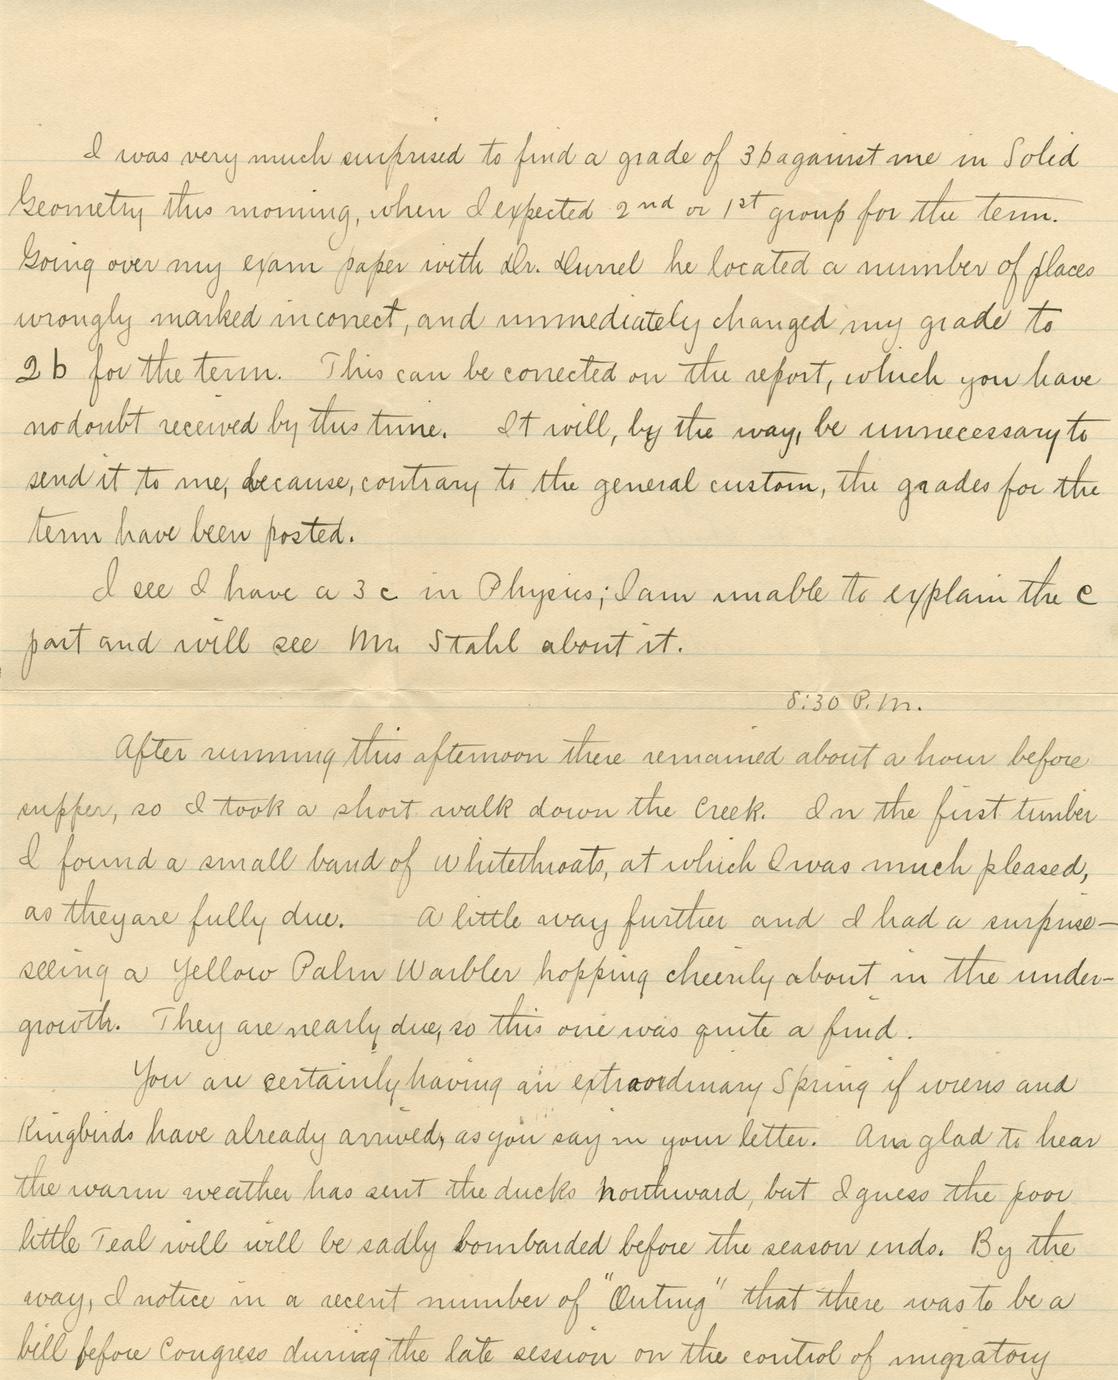 I was very much surprised to find a grade of 3b against me in Solid
Geometry this morning, when I expected 2nd or 1st group for the term.
Going over my exam paper with Dr. Durrel he located a number of places
wrongly marked incorrect, and immediately changed my grade to
2b for the term. This can be corrected on the report, which you have
no doubt received by this time. It will, by the way, be unnecessary to
send it to me, because, contrary to the general custom, the grades for the
term have been posted.
I see I have a 3c in Physics; I am unable to explain the c
part and will see Mr. Stahl about it.
8:30 P.M.
After running this afternoon there remained about a hour before
supper, so I took a short walk down the Creek. In the first timber
I found a small band of Whitethroats, at which I was much pleased,
as they are fully due. A little way further and I had a surprise—
seeing a Yellow Palm Warbler hopping cheerily about in the under-
growth. They are nearly due, so this one was quite a find.
You are certainly having an extraordinary Spring if wrens and
Kingbirds have already arrived, as you say in your letter. Am glad to hear
the warm weather has sent the ducks northward, but I guess the poor
little Teal will will be sadly bombarded before the season ends. By the
way, I notice in a recent number of "Outing" that there was to be a
bill before Congress during the late session on the control of migratory